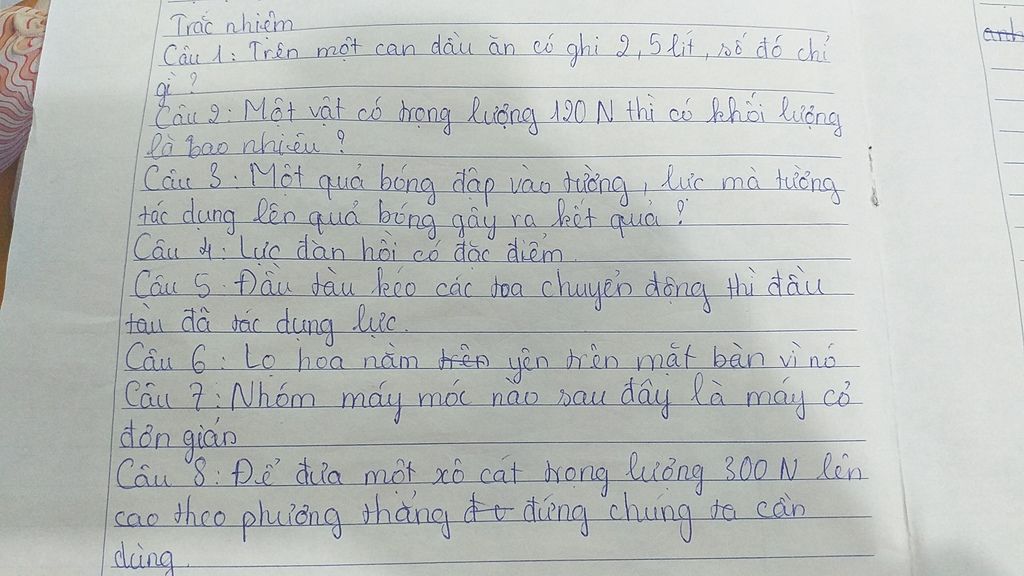 Trắc nhiệm
Câu 1: Trên một can dầu ăn có ghi 2,5 lít, số đó chỉ
gì?
Câu 2: Một vật có trọng lượng 120 N thì có khối lượng
là bao nhiêu?
Câu 3: Một quả bóng đập vào tường, lực mà tường
tác dụng lên quả bóng gây ra kết quả?
Câu 4: Lực đàn hồi có đặc điểm.
Câu 5. Đầu tàu kéo các toa chuyển động thì đầu
tàu đã tác dụng lực.
Câu 6: Lọ hoa nằm trên yên trên mặt bàn vì nó
Câu 7: Nhóm máy móc nào sau đây là máy cơ
đơn giản
Câu 8: Để đưa một xô cát trọng lượng 300 N lên
cao theo phương thẳng đứng chúng ta cần
dùng.
anh